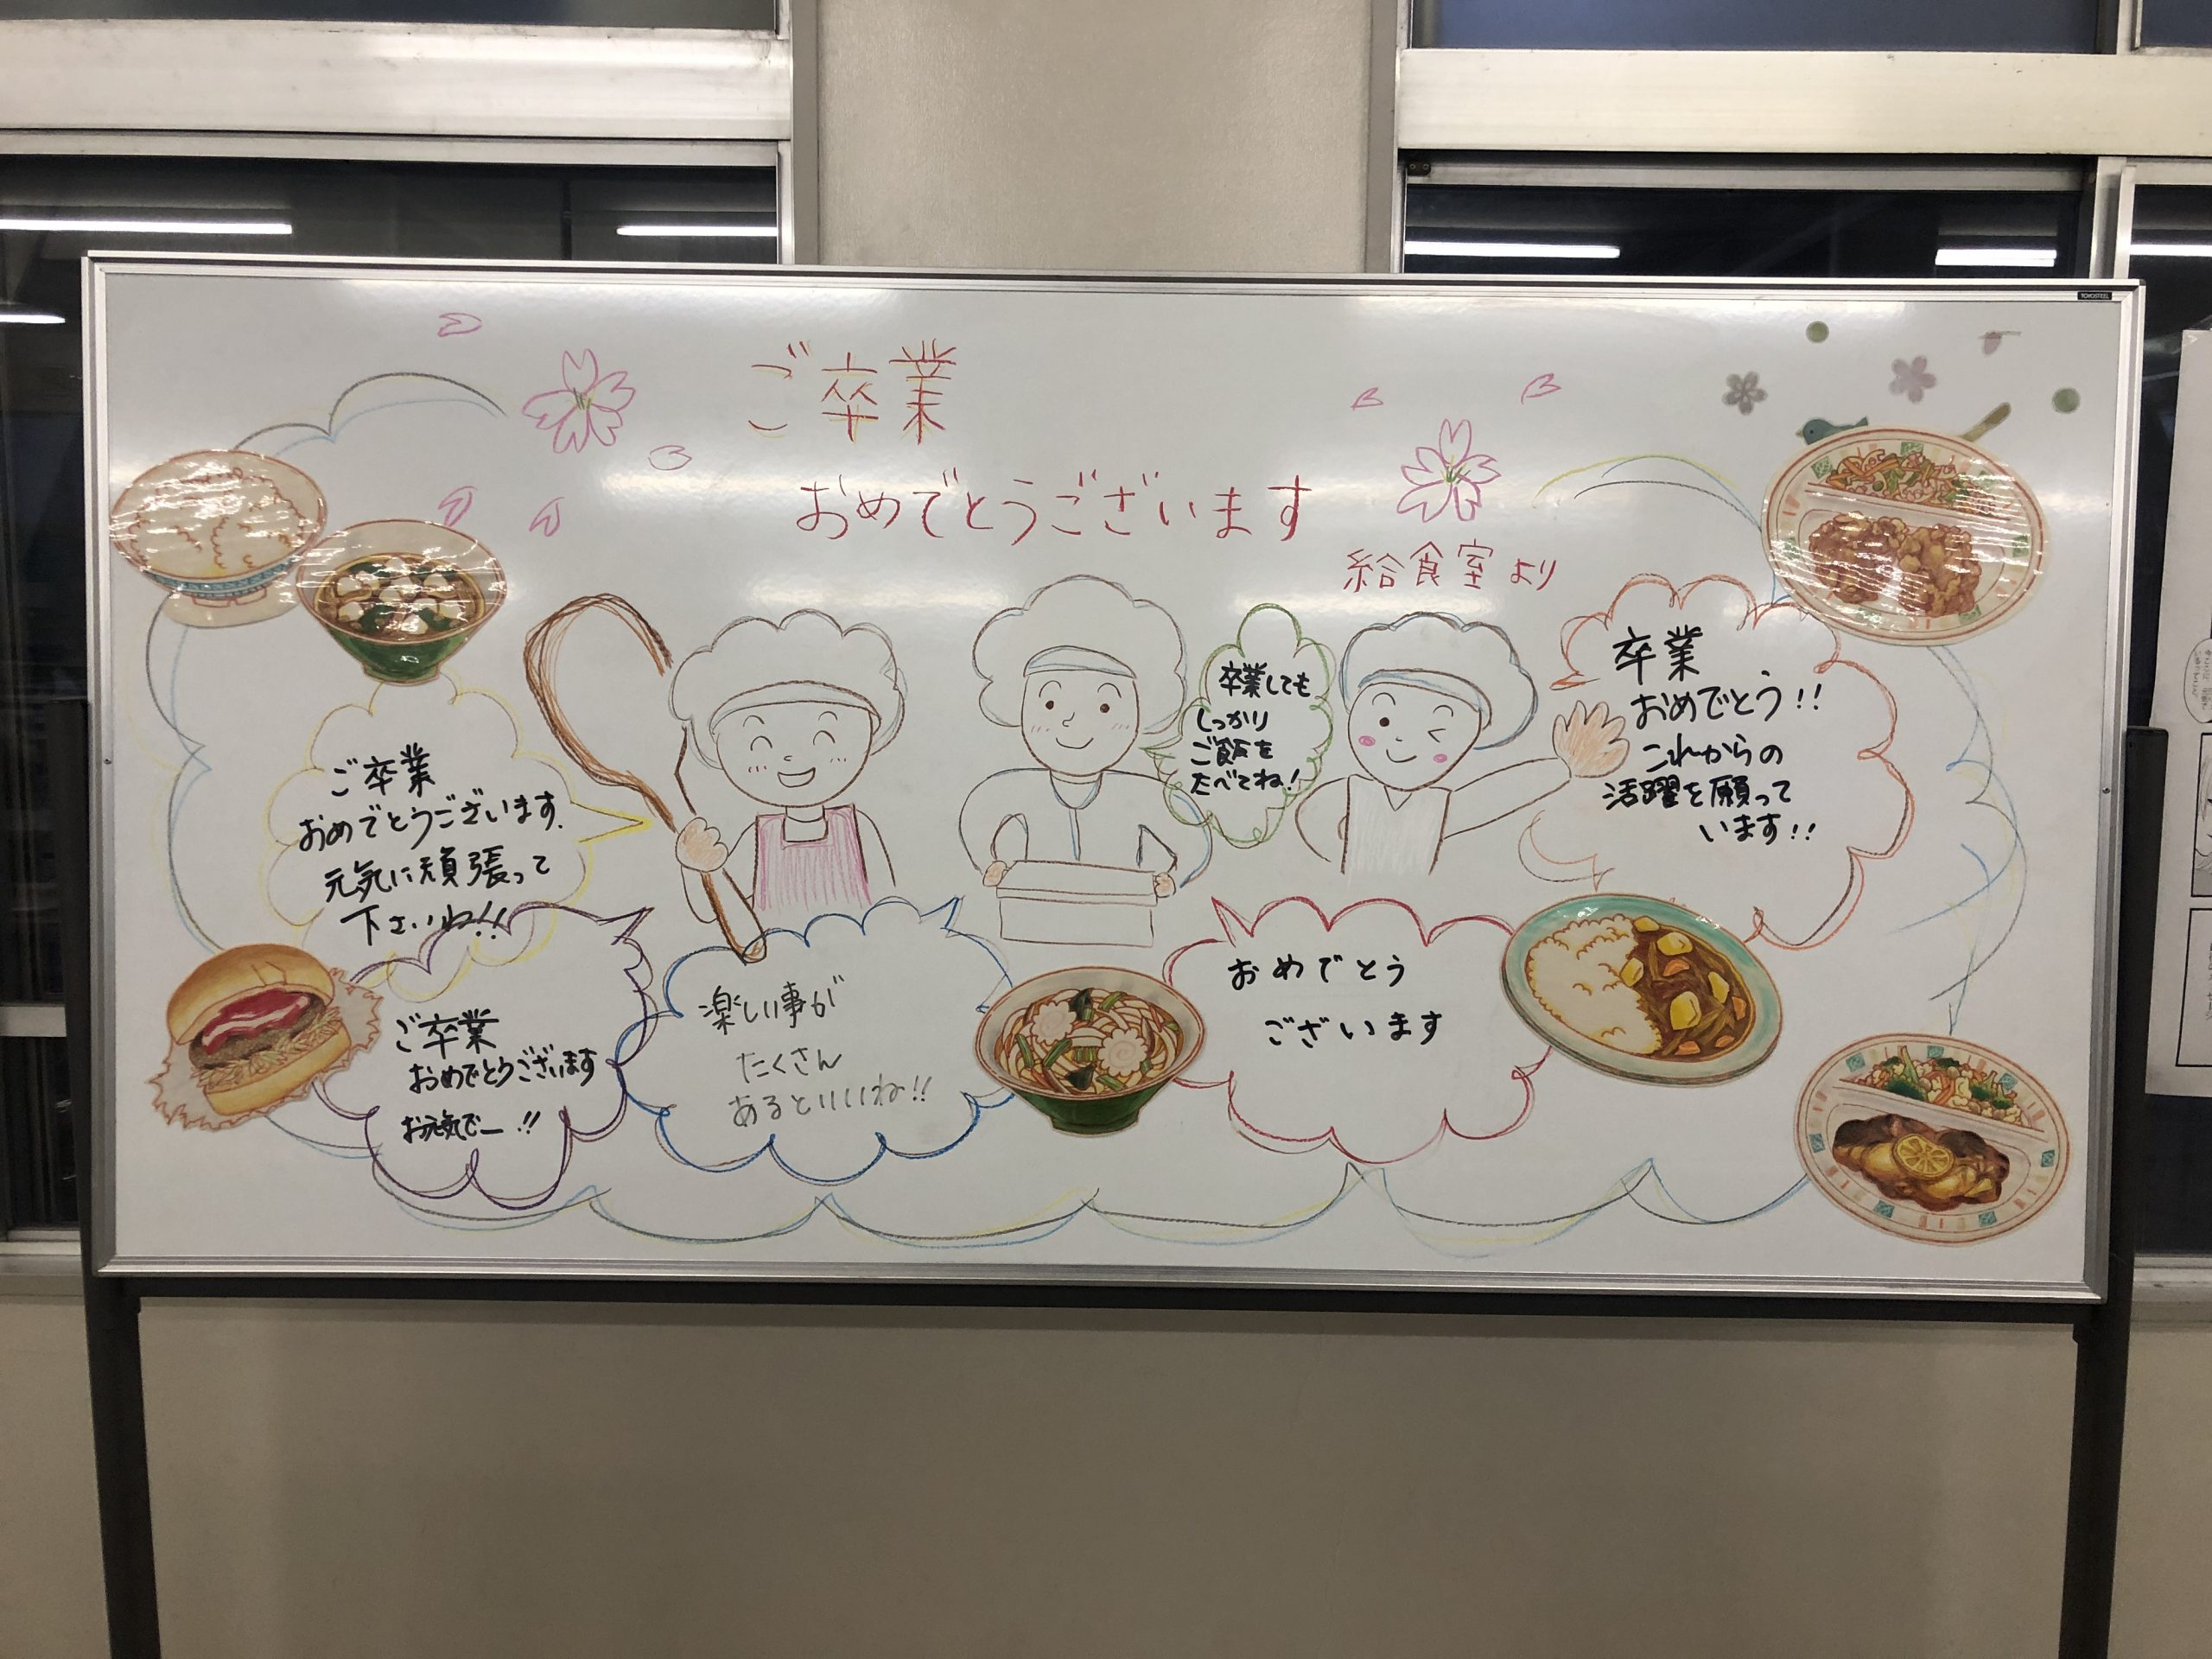 ご卒業
おめでとうございます
給食室より
ご卒業
おめでとうございます.
元気に頑張って
下さいね!!
卒業しても
しっかり
ご飯を
たべてね!
卒業
おめでとう!!
これからの
活躍を願って
います!!
ご卒業
おめでとうございます
お元気でー!!
楽しい事が
たくさん
あるといいね!!
おめでとう
ございます
TOYOSTEEL